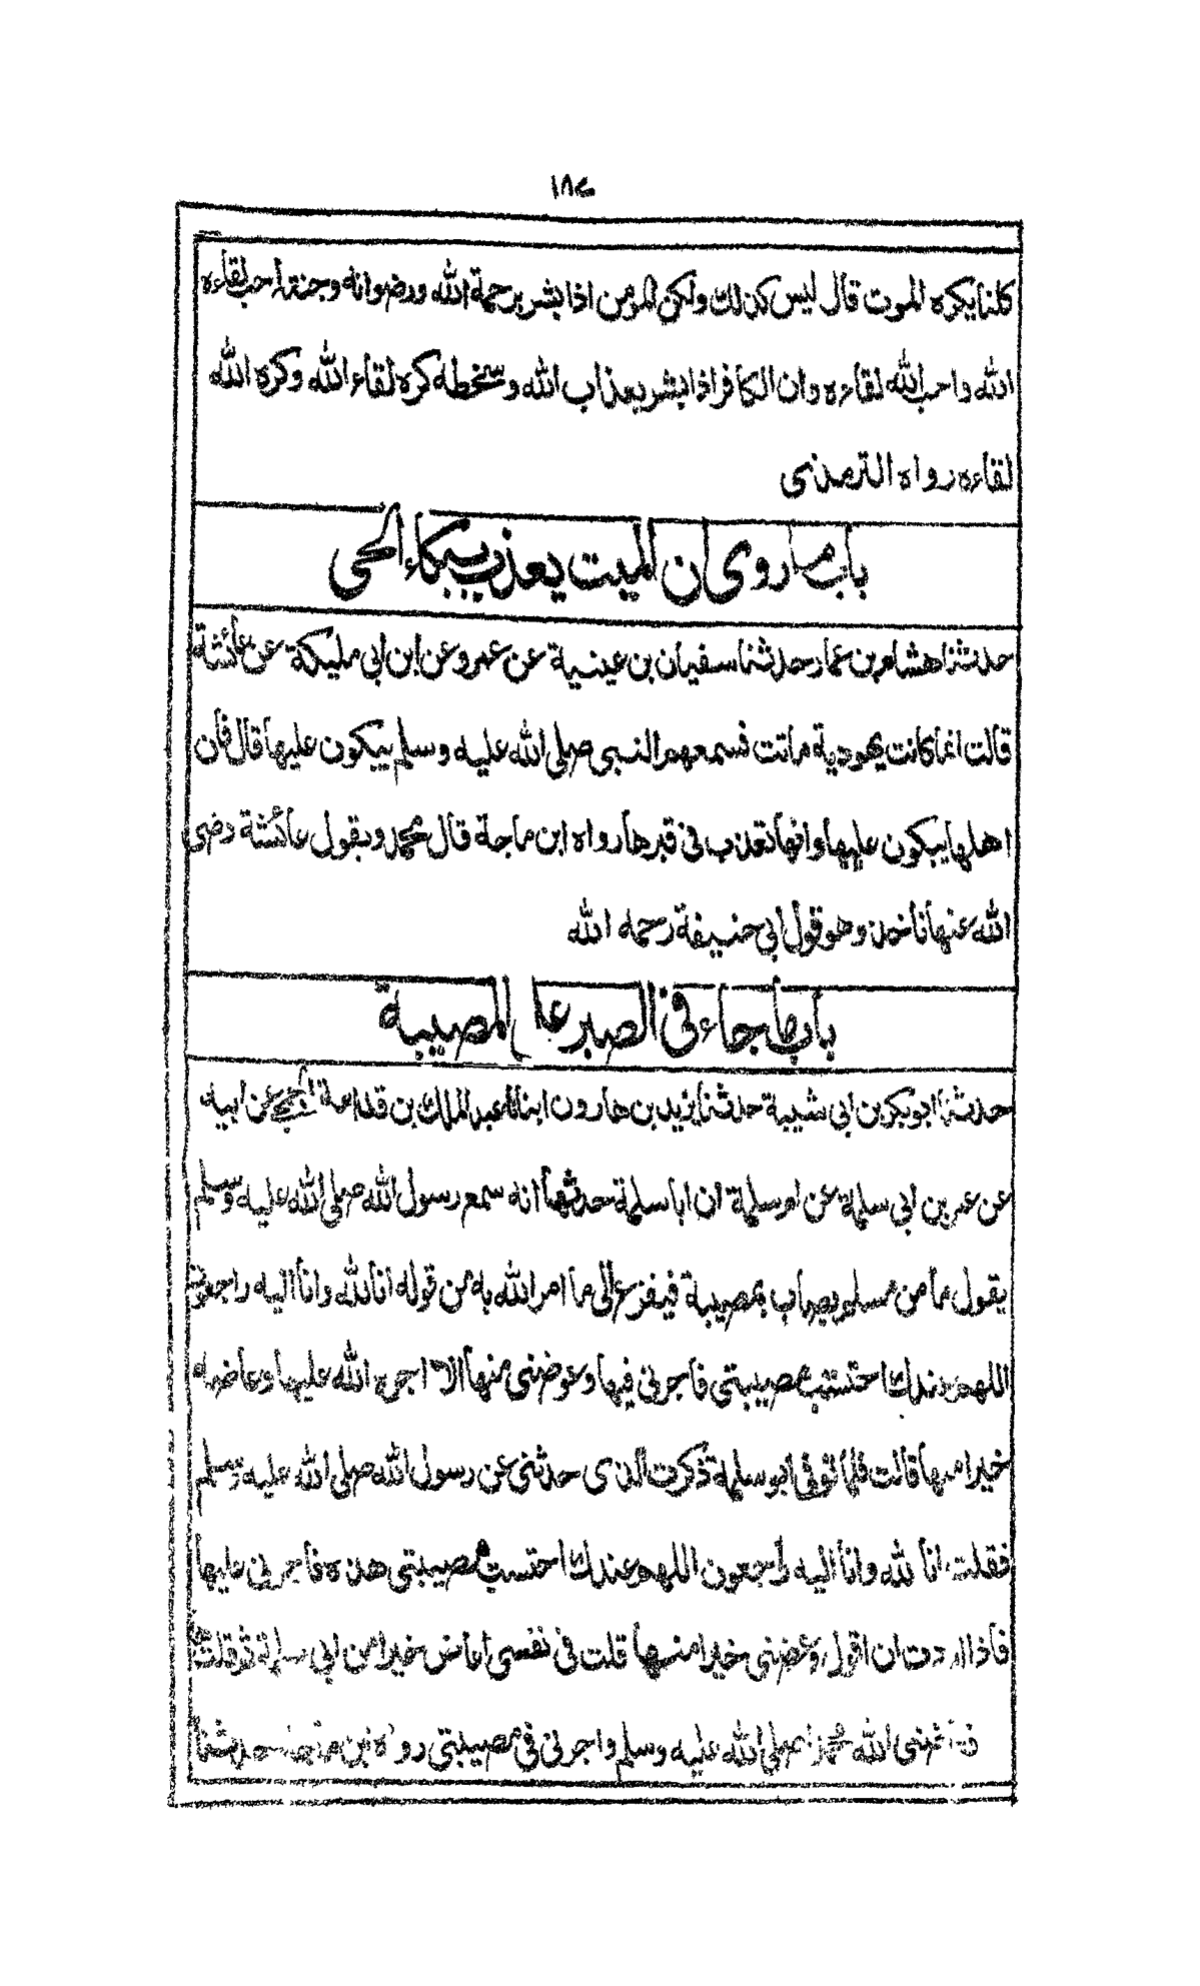 ١٨٤
كلنا يكره الموت قال ليس كذلك ولكن المومن اذا بشر برحمة الله ورضوانه وجنته احب لقاءه
الله واحب الله لقاءه وان الكافر اذا بشر بعذاب الله وسخطه كره لقاء الله وكره الله
لقاءه رواه الترمذى
باب ما روى ان الميت يعذب ببكاء الحى
حدثنا هشام بن عمار حدثنا سفيان بن عينية عن عمرو عن ابن ابى مليكة عن عائشة
قالت انما كانت يهودية ماتت فسمعهم النبى صلى الله عليه وسلم يبكون عليها قال فان
اهلها يبكون عليها وانها تعذب فى قبرها رواه ابن ماجة قال محمد وبقول عائشة رضى
الله عنها ناخذ وهو قول ابى حنيفة رحمه الله
باب ما جاء فى الصبر على المصيبة
حدثنا ابو بكر بن ابى شيبة حدثنا يزيد بن هارون انبانا عبد الملك بن قدامة الجمحى عن ابيه
عن عمر بن ابى سلمة عن ام سلمة ان ابا سلمة حدثها انه سمع رسول الله صلى الله عليه وسلم
يقول ما من مسلم يصاب بمصيبة فيفزع الى ما امر الله به من قوله انا لله وانا اليه راجعون
اللهم عندك احتسبت مصيبتى فاجرنى فيها وعوضنى منها الا اجره الله عليها وعاضه
خيرا منها قالت فلما توفى ابو سلمة ذكرت الذى حدثنى عن رسول الله صلى الله عليه وسلم
فقلت انا لله وانا اليه راجعون اللهم عندك احتسبت مصيبتى هذه فاجرنى عليها
فاذا اردت ان اقول وعضنى خيرا منها قلت فى نفسى اعاض خيرا من ابى سلمة ثم قلتها
فعاضنى الله محمدا صلى الله عليه وسلم واجرنى فى مصيبتى رواه ابن ماجة حدثنا